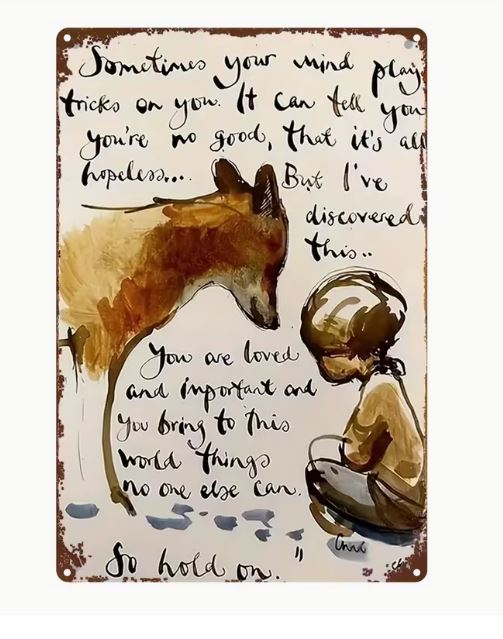 Sometimes your mind play
tricks on you. It can tell you
you're no good, that it's all
hopeless... But I've
discovered
this..
You are loved
and important and
you bring to this
world things
no one else can.
So hold on."